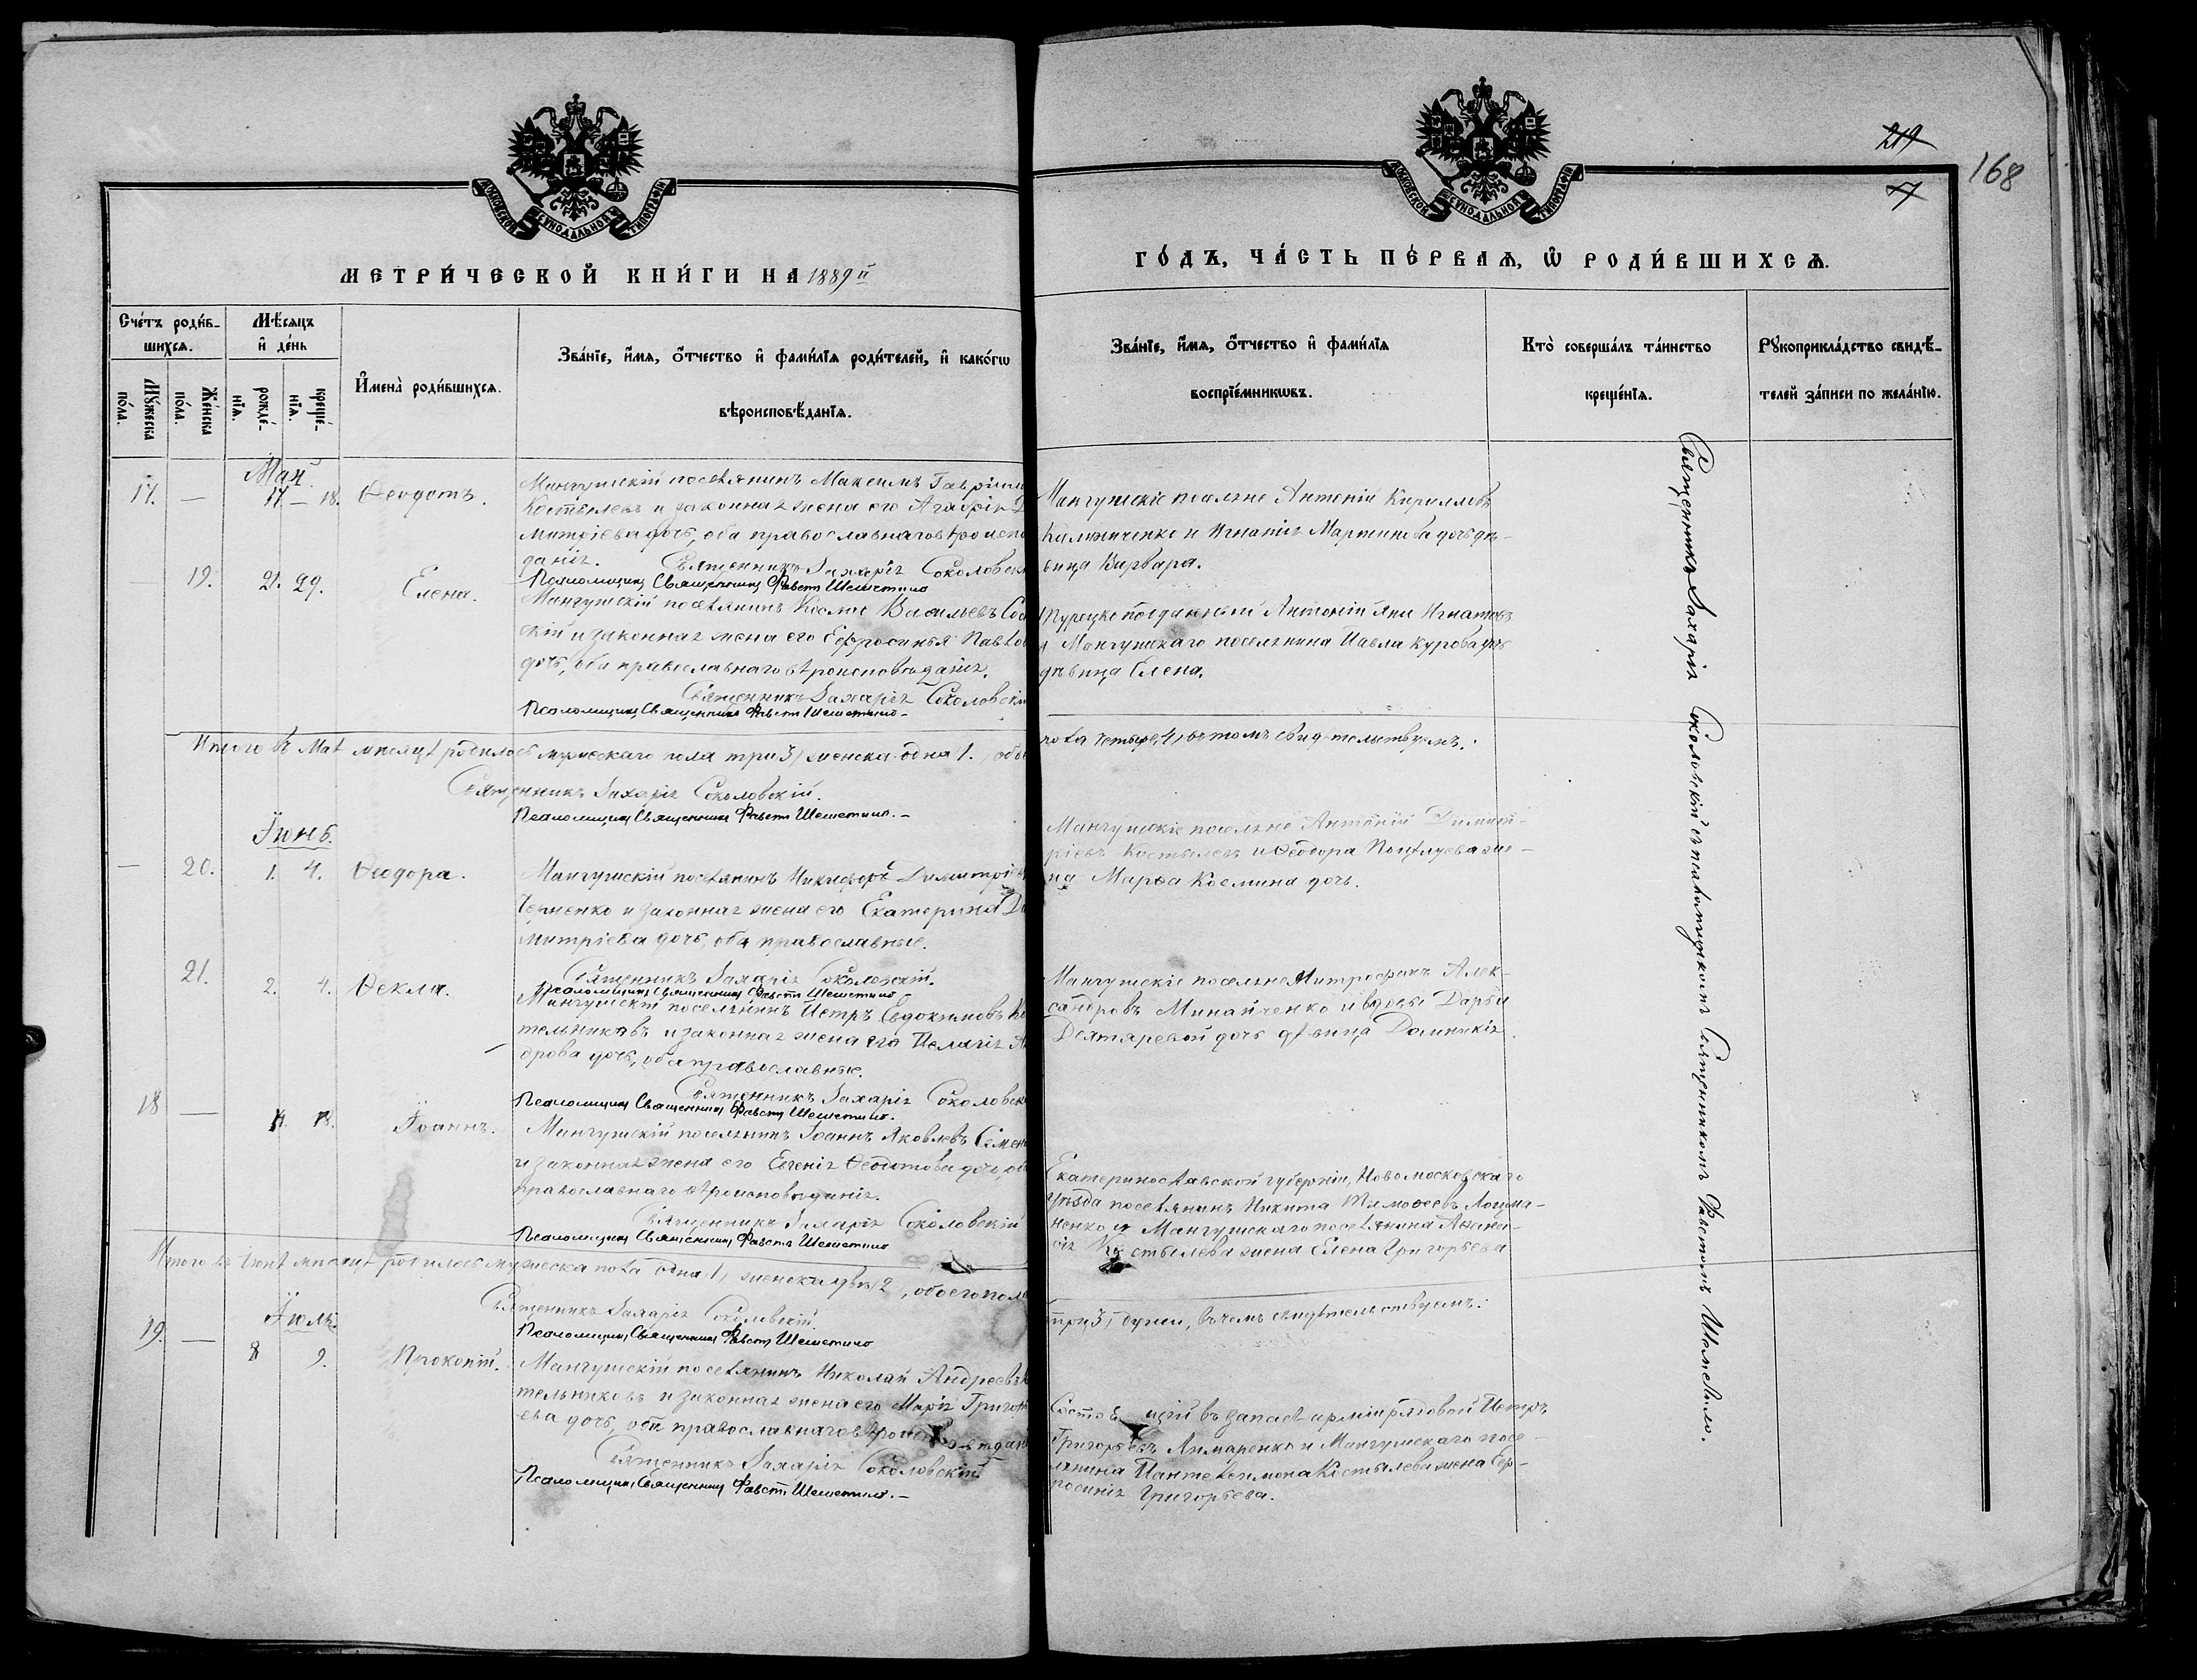 219
168
7
МОСКОВСКОЙ СѴНОДАЛЬНОЙ ТИПОГРАФІИ
МОСКОВСКОЙ СѴНОДАЛЬНОЙ ТИПОГРАФІИ
МЕТРИ́ЧЕСКОЙ КНИ́ГИ НА 1889й
ГО́ДЪ, ЧА́СТЬ ПЕ́РВАѦ, Ѡ РОДИ́ВШИХСѦ.
Сче́тъ роди́в-
шихсѧ.
Мꙋ́жеска по́ла.
Же́нска по́ла.
Мѣ́сѧцъ
и де́нь
рожде́-
нїѧ.
креще́-
нїѧ.
И҆мена̀ роди́вшихсѧ.
Зва́нїе, и҆́мѧ, ѻ҆́тчество и҆ фами́лїѧ роди́телей, и҆ како́гѡ
вѣроисповѣ́данїѧ.
Зва́нїе, и҆́мѧ, ѻ҆́тчество и҆ фами́лїѧ
воспрїе́мникѡвъ.
Кто̀ соверша́лъ та́инство
креще́нїѧ.
Рꙋкоприкла́дство свидѣ́-
телей за́писи по жела́нїю.
Май.
17. — 17 — 18. Ѳеодотъ.
Мангушскій поселянинъ Максимъ Гаврiил
Костылевъ и законная жена его Агафія Д
митріева дочь, оба православнаго вѣроиспо
данія. Священникъ Захарія Соколовскі
Псаломщикъ Священникъ Фавстъ Шеметило
Мангушскіе поселяне Антоній Кирилловъ
Калиниченко и Игнатія Мартинова дочь дѣ-
вица Варвара.
— 19. 21. 29. Елена.
Мангушскій поселянинъ Косьма Васильевъ Сос
скій и законная жена его Ефросинья Павлов
дочь, оба православнаго вѣроисповѣданія.
Священникъ Захарія Соколовскій
Псаломщикъ Священникъ Фавстъ Шеметило-
Турецко подданный Антоній Яни Игнатовъ
и Мангушскаго поселянина Павла Курова дочь
дѣвица Елена.
Итого въ Маѣ мѣсяцѣ родилось мужескаго пола три 3, женска одна 1. обое
пола четыре, 4, въ томъ свидѣтельствуемъ:
Священникъ Захарія Соколовскій.
Псаломщикъ Священникъ Фавстъ Шеметило.-
Іюнь.
— 20. 1. 4. Ѳеодора.
Мангушскій поселянинъ Никифоръ Димитріев
Черненко и законная жена его Екатерина Ди
митріева дочь, оба православные.
Священникъ Захарія Соколовскій.
Псаломщикъ Священникъ Фавстъ Шеметило-
Мангушскіе поселяне Антоній Димит-
ріевъ Костылевъ и Ѳеодора Поцѣлуева же-
на Марѳа Космина дочь.
21. 2. 4. Ѳекла.
Мангушскій поселянинъ Петръ Евдокимовъ Ко
тельниковъ и законная жена его Пелагія А
дрова дочь, оба православные.
Священникъ Захарія Соколовск
Псаломщикъ Священникъ Фавстъ Шеметило.
Мангушскіе поселяне Митрофанъ Алек-
сандровъ Минайченко и вдовы Дарьи
Дегтяревой дочь дѣвица Доминикія.
18 — Іоаннъ.
Мангушскій поселянинъ Іоаннъ Яковлевъ Семен
и законная жена его Евгенія Ѳеодотова дочь, об
православнаго вѣроисповѣданія.
Священникъ Захарія Соколовскій
Псаломщикъ Священникъ Фавстъ Шеметило
Екатеринославской губерніи, Новомосковскаго
уѣзда поселянинъ Никита Тимоѳеевъ Лоцма-
ненко и Мангушскаго поселянина Аѳана-
сія Костылева жена Елена Григорьева
Итого въ Іюнѣ мѣсяцѣ родилось мужеска пола одна 1, женска двѣ 2, обоего пол
три 3, души, въ чемъ свидѣтельствуемъ:
Священникъ Захарія Соколовскій.
Псаломщикъ Священникъ Фавстъ Шеметило
Іюль.
19. — 8 9. Прокопій.
Мангушскій поселянинъ Николай Андреевъ К
тельниковъ и законная жена его Марія Григор
ева дочь, оба православнаго вѣроисповѣдан
Священникъ Захарія Соколовскій
Псаломщикъ Священникъ Фавстъ Шеметило.-
Состоящій въ запасѣ арміи рядовой Петръ
Григорьевъ Лимаренко и Мангушскаго посе-
лянина Пантелеимона Костылева жена Еф-
росинія Григорьева.
Священникъ Захарія Соколовскій съ псаломщикомъ Священникомъ Фавстомъ Шеметило.